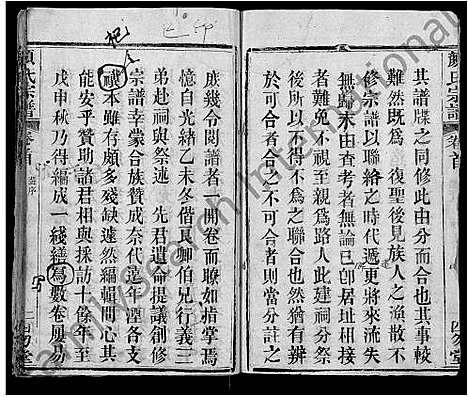 顏氏宗譜
卷首
四勿堂
其譜牒之同修此由分而合也其事較
難然既為 復聖後見族人之渙散不
修宗譜以聯絡之時代遞更將來流失
無歸未由查考者無論已卽居址相接
者難免不視至親為路人此建祠分祭
後所以不得不為之聯合也然猶有辨
於可合者合之於不可合者則當分註之
庶幾令閱譜者一開卷而瞭如指掌焉
憶自光緒乙未冬偕長卿伯兄行義三
弟赴祠與祭述 先君遺命提議創修
宗譜幸蒙合族贊成奈代遠年湮各支
譜本雖存頗多殘缺遽然編輯問心其
能安乎贊助諸君相與採訪十餘年至
戊申秋乃得編成一綫繕寫數卷屢易
顏氏宗譜
卷首
序
二
四勿堂